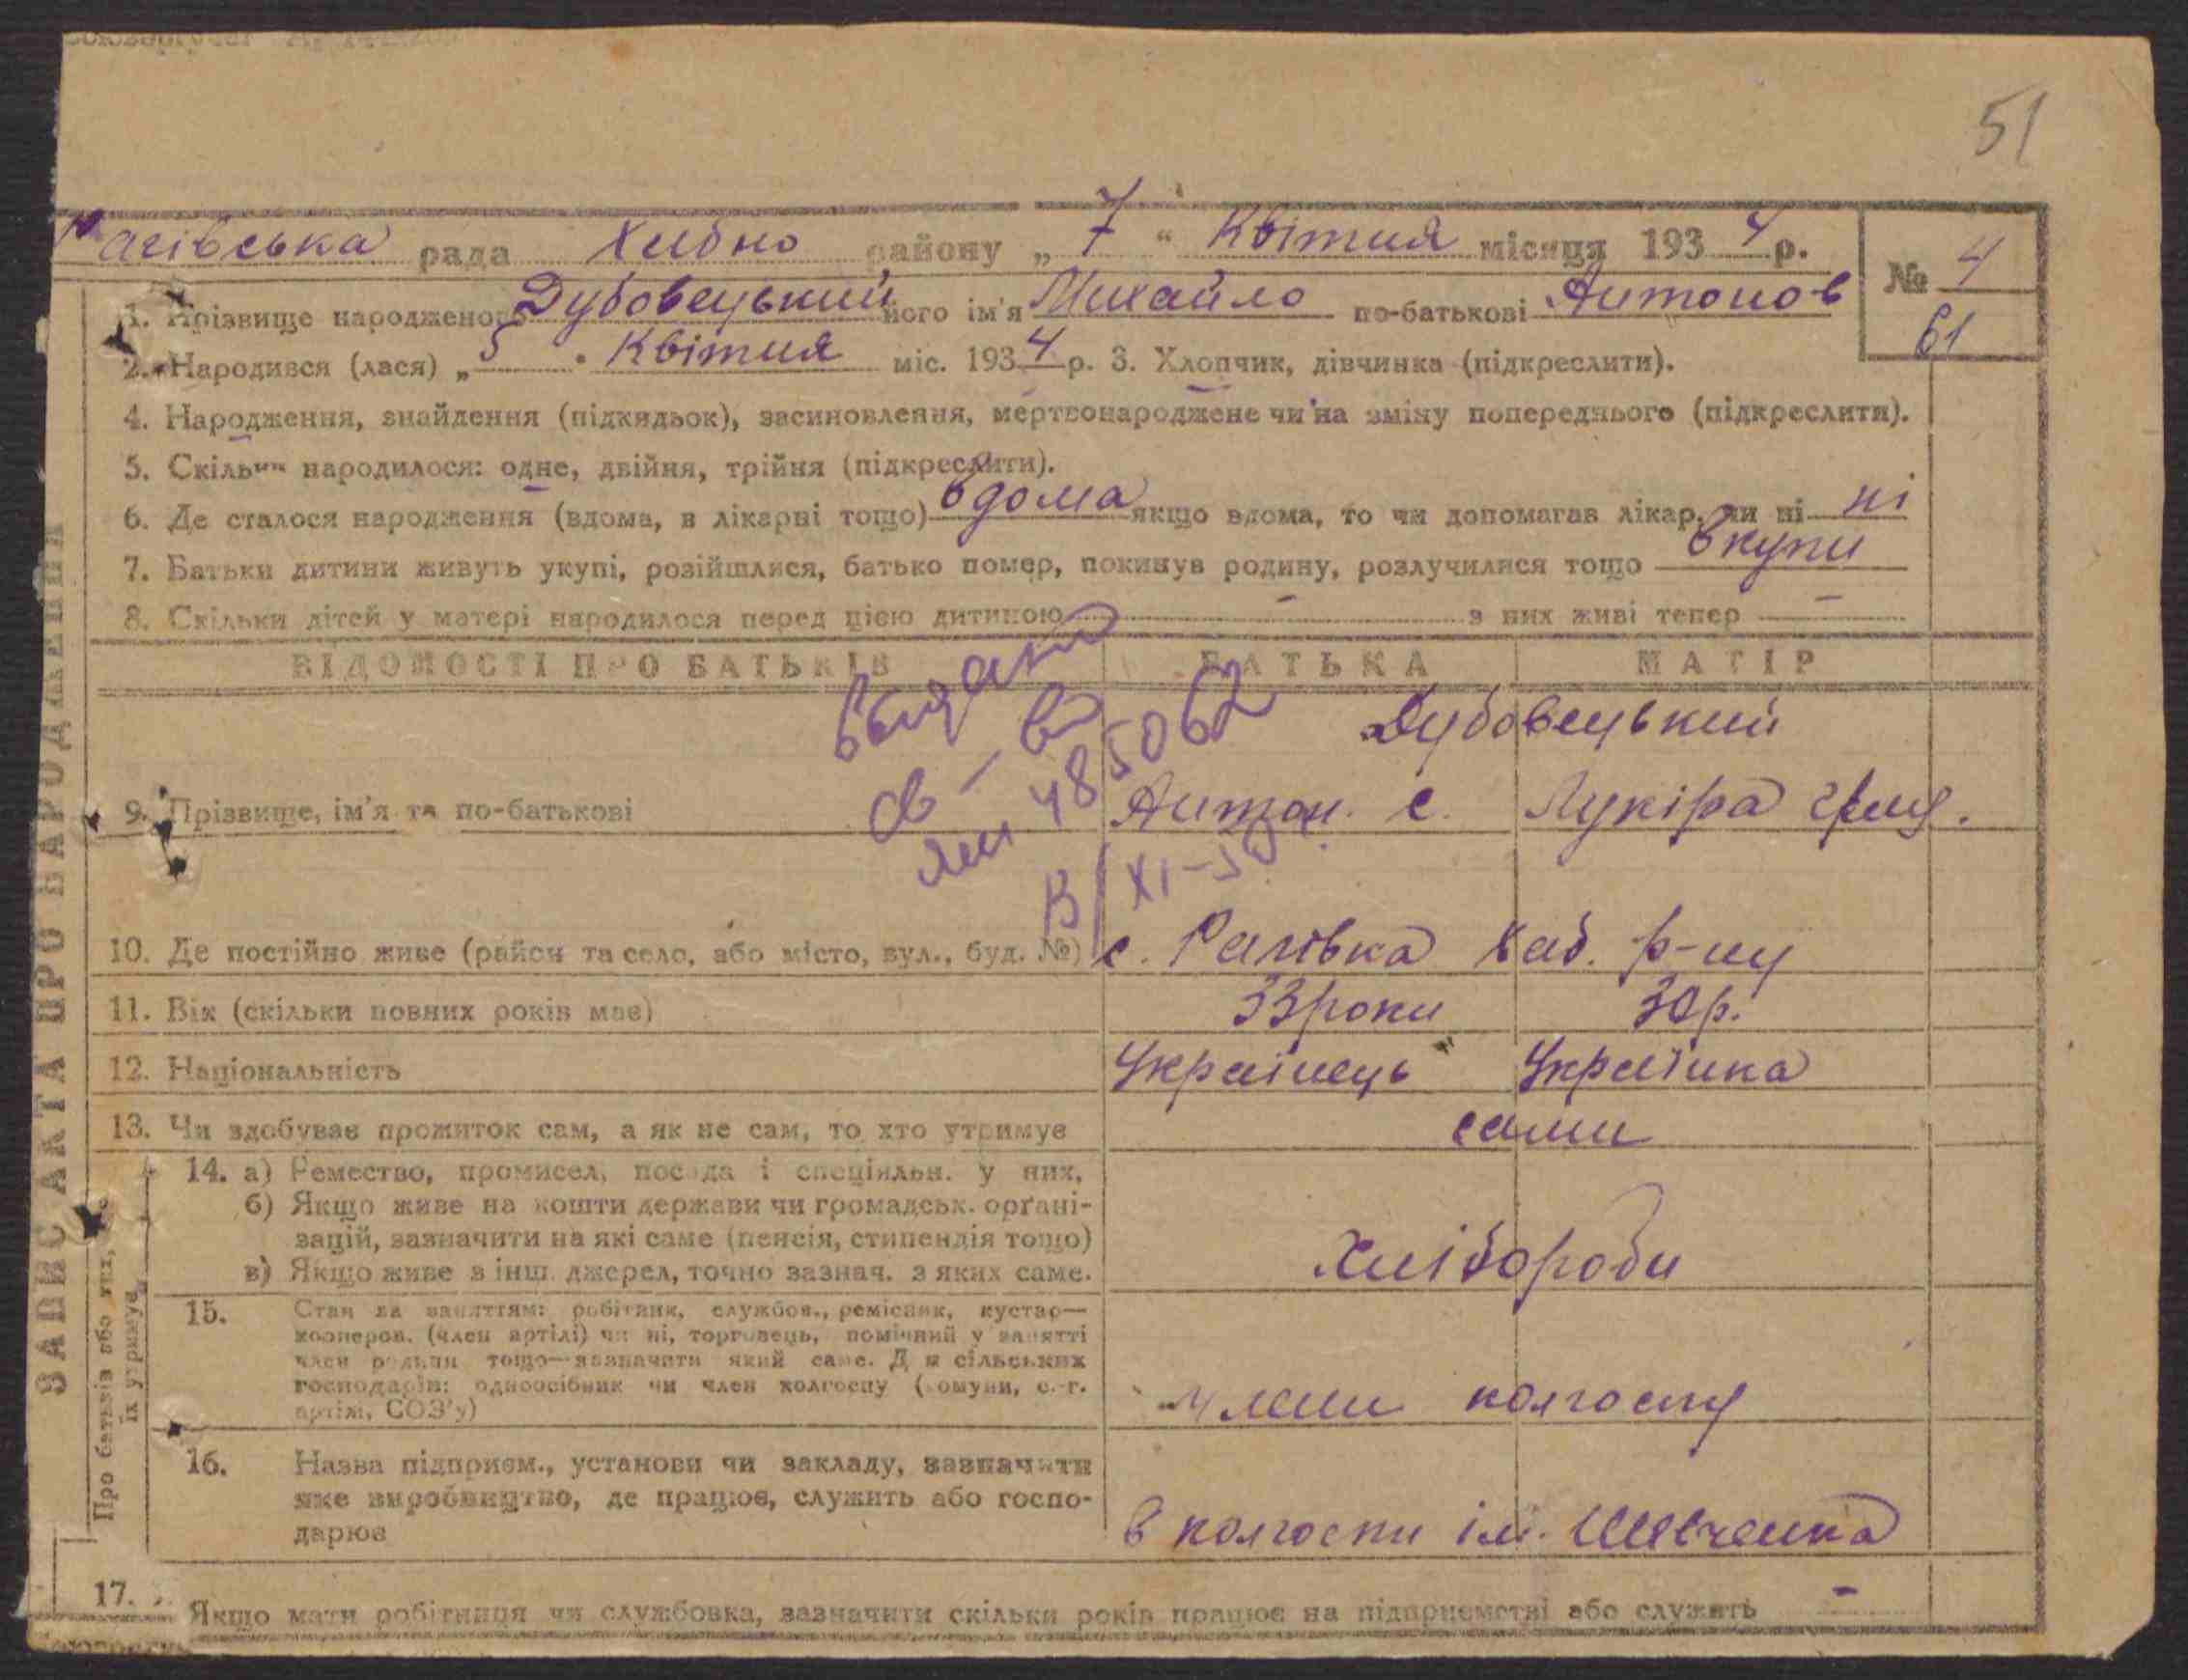 51
Рагівська рада Хабно району „ 7 “ Квітня місяця 1934 р.
№ 4
61
1. Прізвище народженого Дубовецький його ім'я Михайло по-батькові Антонов
2. Народився (лася) „ 5 " Квітня міс. 1934 р. 3. Хлопчик, дівчинка (підкреслити).
4. Народження, знайдення (підкидьок), засиновлення, мертвонароджене чи на зміну попереднього (підкреслити).
5. Скільки народилося: одне, двійня, трійня (підкреслити).
6. Де сталося народження (вдома, в лікарні тощо) вдома якщо вдома, то чи допомагав лікар, чи ні ні
7. Батьки дитини живуть укупі, розійшлися, батько помер, покинув родину, розлучилися тощо вкупи
8. Скільки дітей у матері народилося перед цією дитиною - з них живі тепер -
ВІДОМОСТІ ПРО БАТЬКІВ БАТЬКА МАТІР
Дубовецький
9. Прізвище, ім'я та по-батькові Антон. с. Лукіра
св-во
485062
XI-
10. Де постійно живе (район та село, або місто, вул., буд. №) с. Рагівка Хаб. р-ну
11. Вік (скільки повних років має) 33 роки 30 р.
12. Національність Українець Українка
13. Чи здобуває прожиток сам, а як не сам, то хто утримує сами
14. а) Ремество, промисел, посада і спеціяльн. у них,
б) Якщо живе на кошти держави чи громадськ. орґані-
зацій, зазначити на які саме (пенсія, стипендія тощо)
в) Якщо живе з інш. джерел, точно зазнач. з яких саме.
Хлібороби
15. Стан за заняттям: робітник, службов., ремісник, кустар—
кооперов. (член артілі) чи ні, торговець, помічний у занятті
член родини тощо—зазначити який саме. Для сільських
господарів: одноосібник чи член колгоспу (комуни, с.-г.
артілі, СОЗ'у)
члени колгоспу
16. Назва підприєм., установи чи закладу, зазначити
яке виробництво, де працює, служить або госпо-
дарює
в колгоспи ім. Шевченка
17. Якщо мати робітниця чи службовка, зазначити скільки років працює на підприємстві або служить -
ЗАПИС АКТА ПРО НАРОДЖЕННЯ
Про батьків або тих, хто
їх утримує